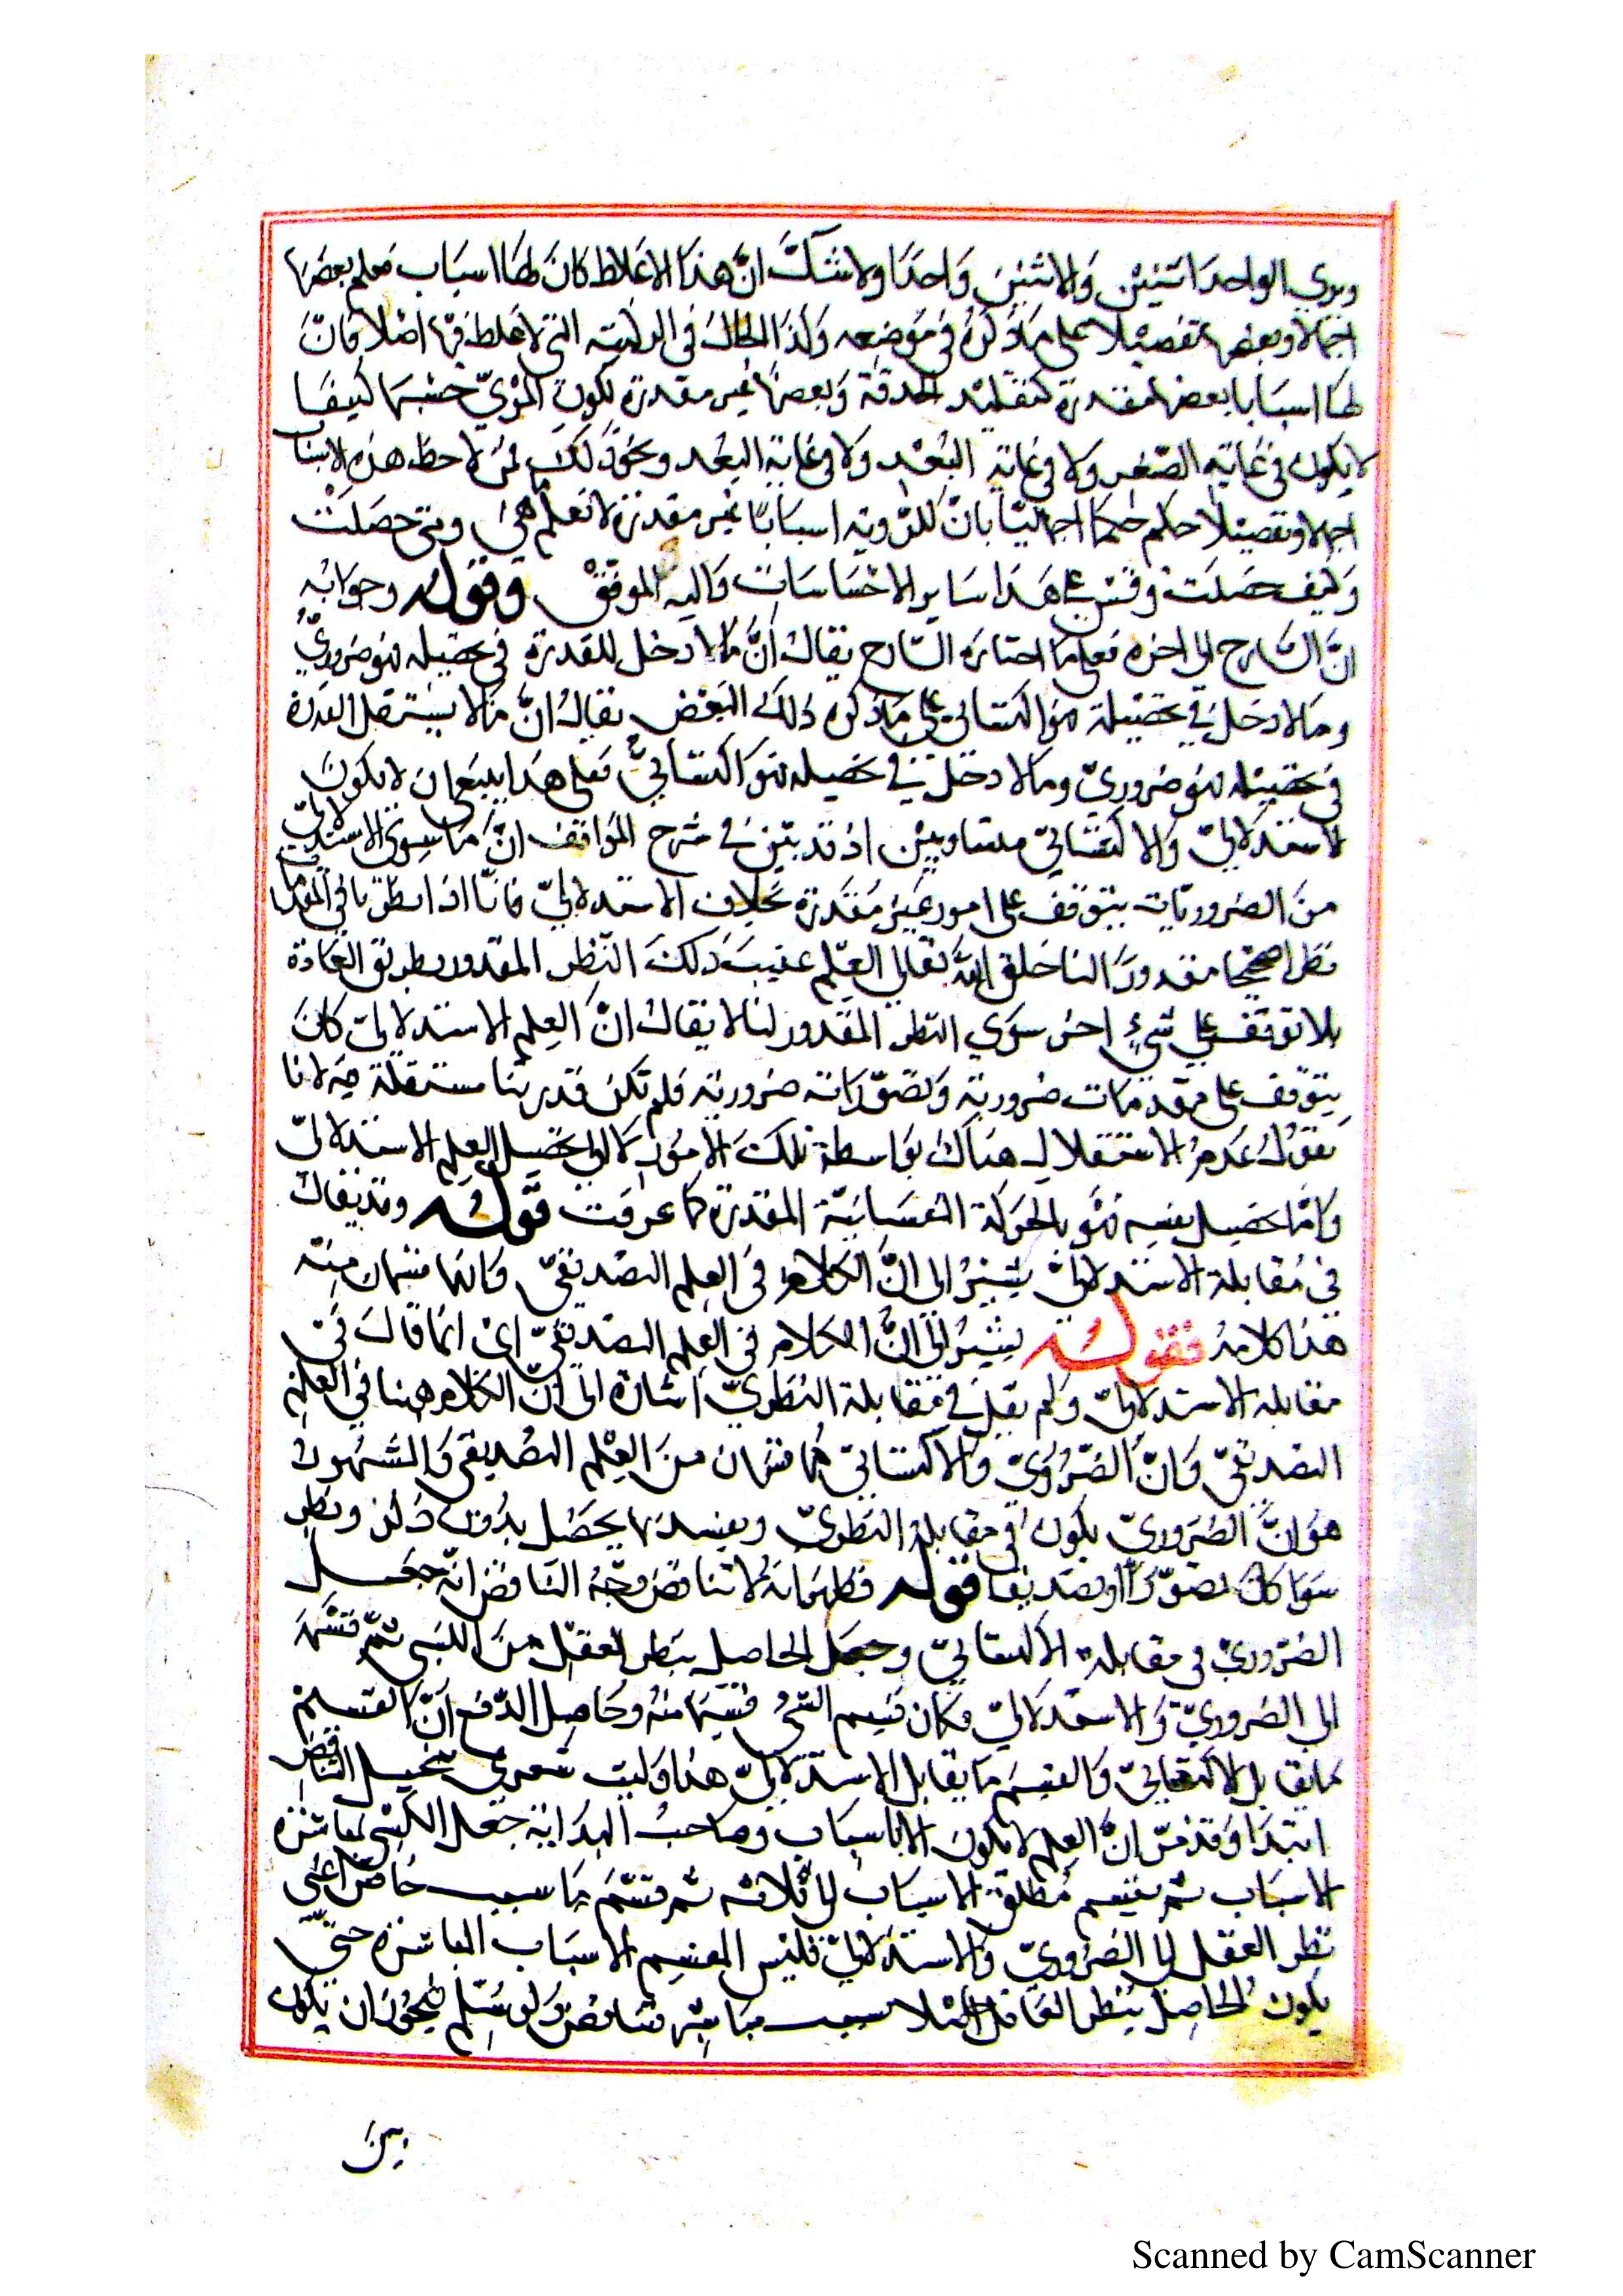 ويري الواحد اثنين والاثنين واحدا ولا شك ان هذا الاغلاط كان لها اسباب فعلم بعضها
اجمالا وبعضها تفصيلا على ما ذكره في موضعه وكذا الحال في الرؤية التي لا غلط فيها اصلا فان
لها اسبابا بعضها مقدرة كتقليد الحدقة وبعضها غير مقدرة لكون المرئي جسما كثيفا
لا يكون في غاية الصغر ولا في غاية البعد ولا في غاية البعد ونحو ذلك فمن لاحظ هذه الاسباب
اجمالا وتفصيلا حكم حكما اجماليا بان للرؤية اسبابا غير مقدرة لا نعلم ما هي ومتى حصلت
وكيف حصلت وقس على هذا ساير الاحساسات واليه الموفق وقوله وجوابه
ان الشارح الى اخره فعلى ما اختاره الشارح يقال ان ما لا دخل للقدرة في تحصيله فهو ضروري
وما لا دخل في تحصيله فهو اكتسابي على ما ذكره ذلك البعض يقال ان ما لا يستقل القدرة
في تحصيله فهو ضروري وما لا دخل في تحصيله فهو اكتسابي فعلى هذا ينبغي ان لا يكون
الاستدلالي والاكتسابي متساويين اذ قد بين في شرح المواقف ان ما سوى الاستدلالي
من الضروريات يتوقف على امور غير مقدرة بخلاف الاستدلالي فانا اذا نظرنا في المقدمات
نظرا صحيحا مقدورا لنا خلق الله تعالى العلم عقيب ذلك النظر المقدور بطريق العادة
بلا توقف على شيء اخر سوي النظر المقدور لنا لا يقال ان العلم الاستدلالي كان
يتوقف على مقدمات ضرورية وتصورات ضرورية فلم تكن قدرتنا مستقلة فيه لانا
نقول عدم الاستقلال هناك بواسطة تلك الامور لا الى تحصيل العلم الاستدلالي
واما تحصيل نفسه فهو بالحركة النفسانية المقدرة كما عرفت قوله وقد يقال
في مقابلة الاستدلالي يشير الى ان الكلام في العلم التصديقي وانهما قسمان منه
هذا كلامه فقوله يشير الى ان الكلام في العلم التصديقي اي انما قال في
مقابلة الاستدلالي ولم يقل في مقابلة النظري اشارة الى ان الكلام هنا في العلم
التصديقي وان الضروري والاكتسابي هما قسمان من العلم التصديقي والمشهور
هو ان الضروري يكون في مقابلة النظري ويفسد بما يحصل بدون ذكر ونظر
سوا كان تصورا او تصديقا قوله فظهر انه لا تناقض وجه التناقض انه جعل
الضروري في مقابلة الاكتسابي وجعل الحاصل بنظر العقل من الكسبي ثم قسمه
الى الضروري والاستدلالي فكان قسيم الشي قسيما منه وحاصل الدفع ان القسيم
ما يقابل الاكتسابي والقسم ما يقابل الاستدلالي هذا وليت شعري تخيل التناقض
ابتدا وقد مر ان العلم لا يكون الا باسباب وصاحب البداية جعل الكسبي لمباشرة
الاسباب ثم يقسم مطلق الاسباب الى ثلاثة ثم قسم ما سبب خاص اعني
نظر العقل الى الضروري والاستدلالي فليس المقسم الاسباب المباشرة حتى
يكون الحاصل بنظر العاقل مثلا سبب مباشر فتناقض ولو سلم فيجوز ان يكون
بين
Scanned by CamScanner